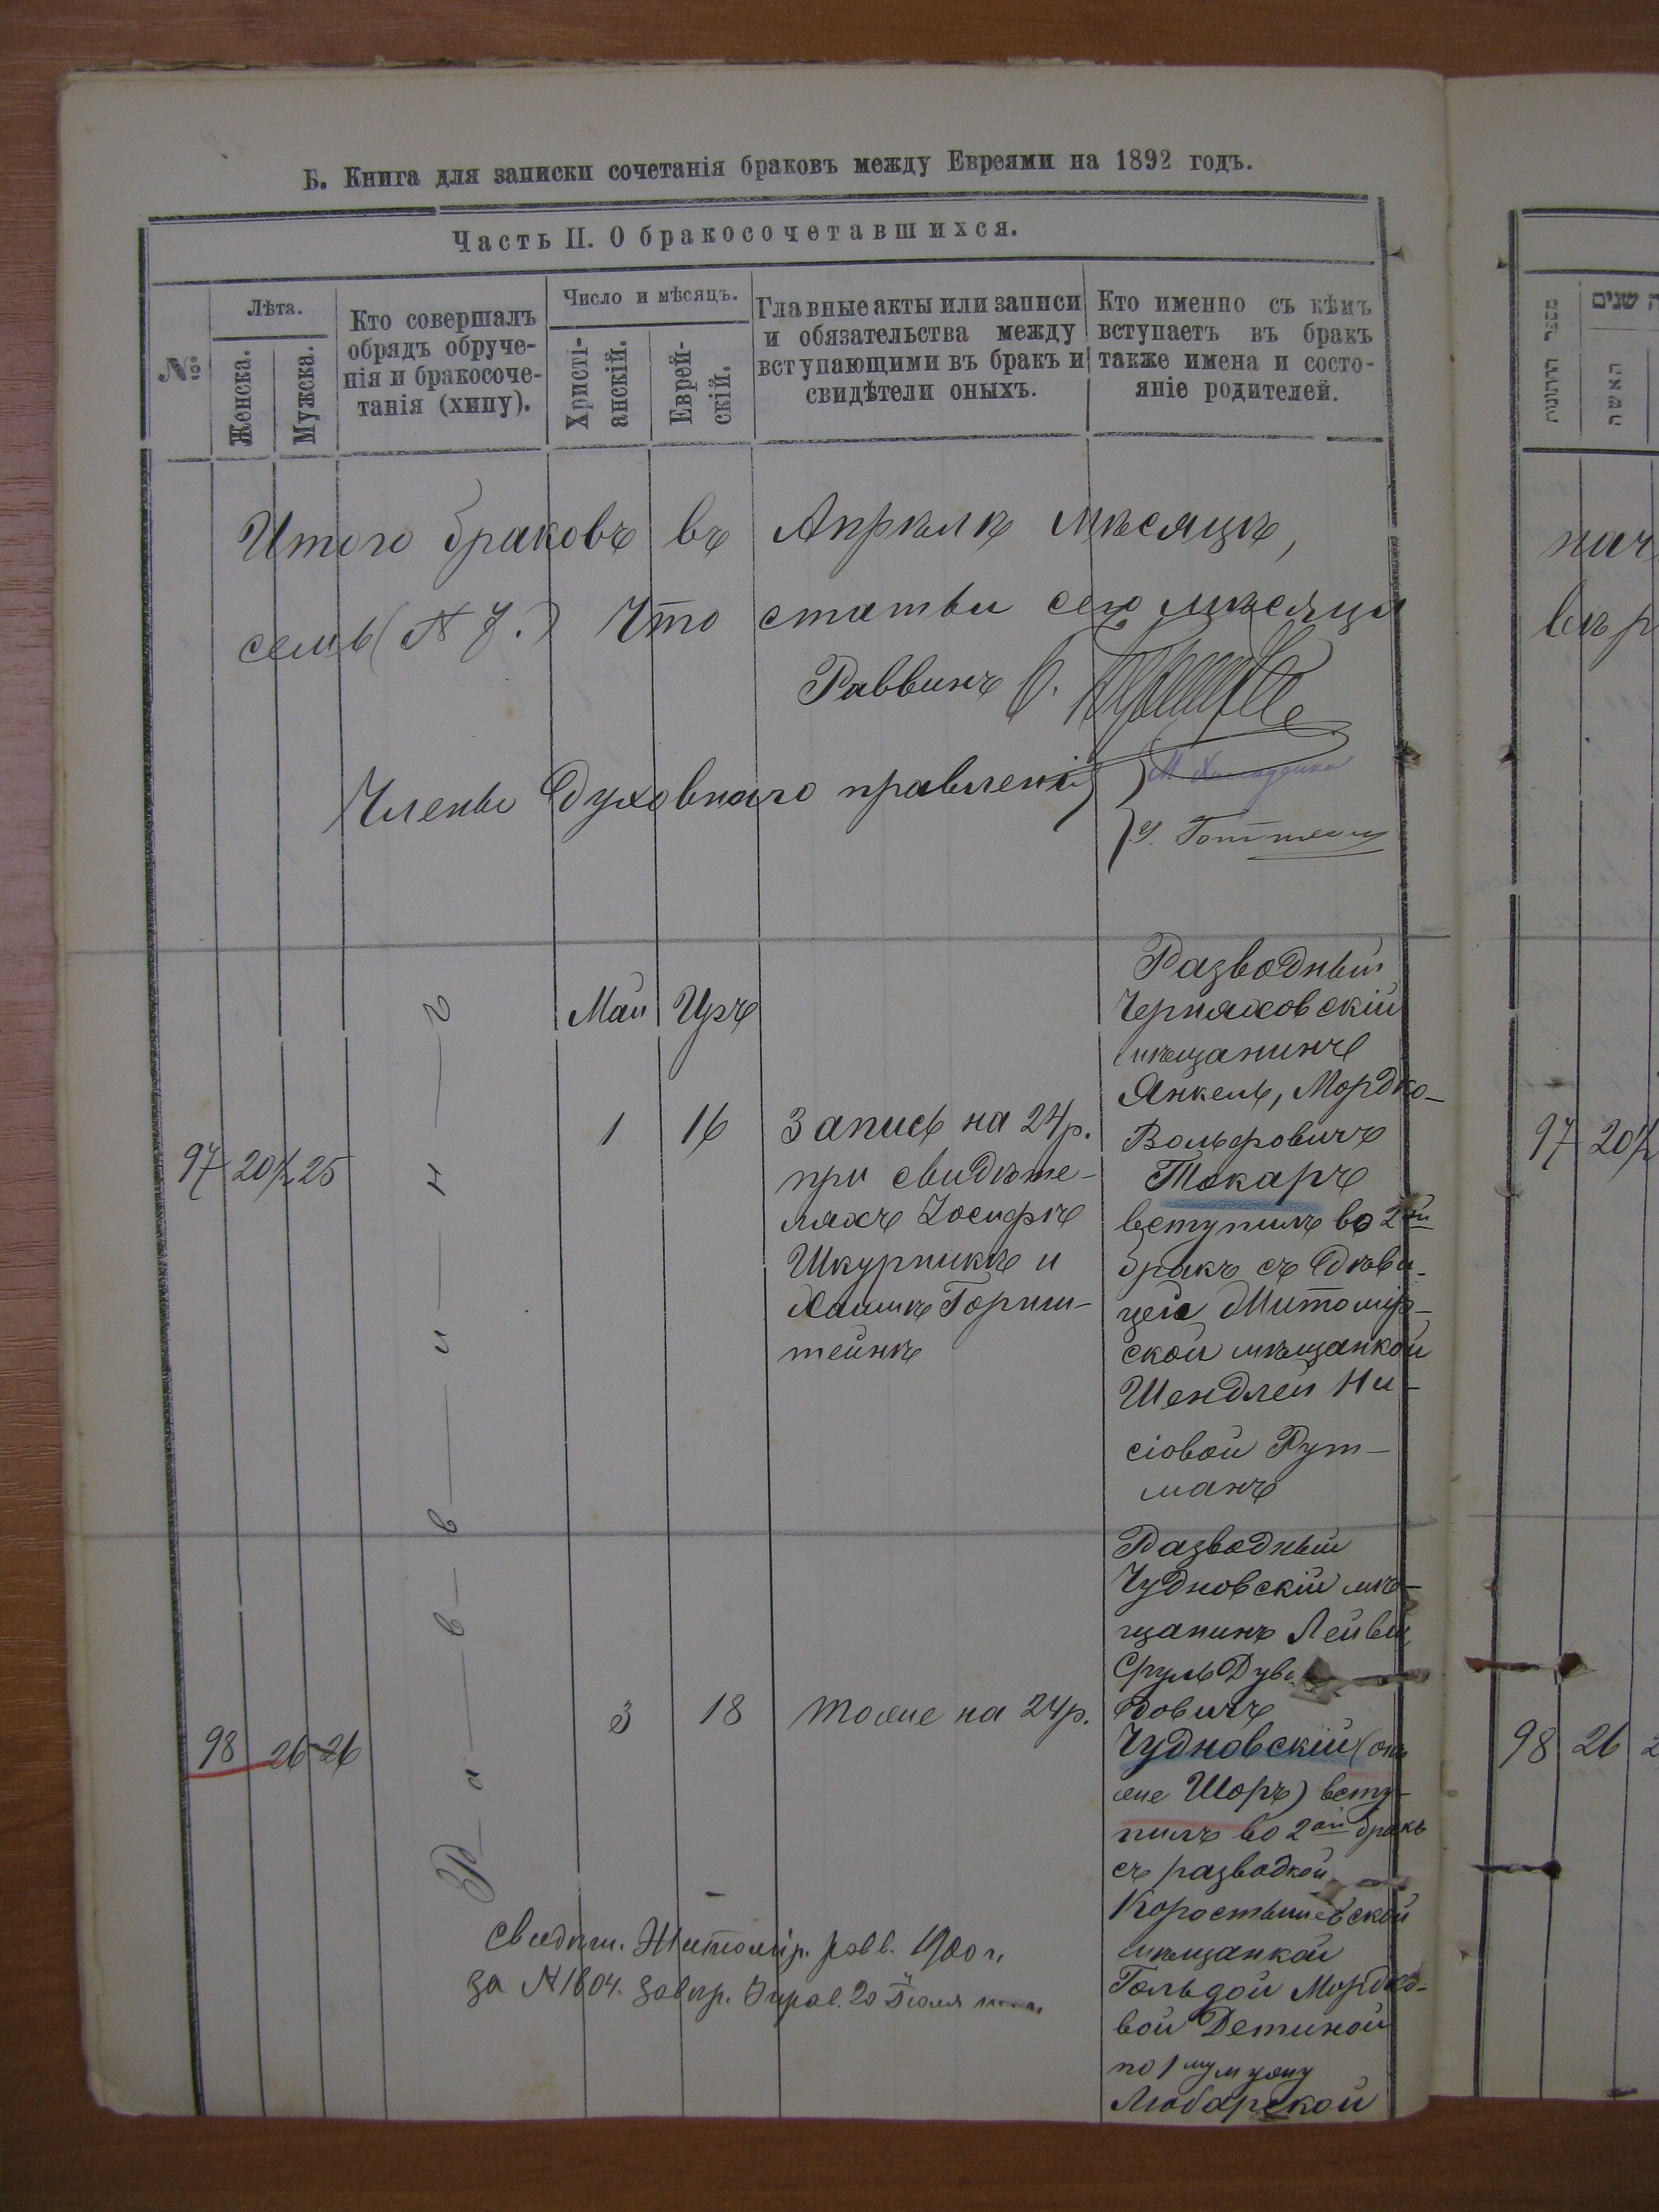 Б. Книга для записки сочетанія браковъ между Евреями на 1892 годъ.
Часть II. О бракосочетавшихся.
№
Лѣта.
Женска.
Мужска.
Кто совершалъ
обрядъ обруче-
нія и бракосоче-
танія (хипу).
Число и мѣсяцъ.
Христі-
анскій.
Еврей-
скій.
Главные акты или записи
и обязательства между
вступающими въ бракъ и
свидѣтели оныхъ.
Кто именно съ кѣмъ
вступаетъ въ бракъ
также имена и состо-
яніе родителей.
Итого браковъ въ Апрѣлѣ мѣсяцѣ,
семь (№ 7.) Что статьи сего мѣсяца
Раввинъ
Члены Духовнаго правленія
Раввинъ
Май Іуръ
97 20½ 25
1 16
Запись на 24 р.
при свидѣте-
ляхъ Іосифѣ
Шкурникѣ и
Хаимѣ Горнш-
тейнѣ
Разводный
Черняховскій
мѣщанинъ
Янкель, Мордко-
Вольфовичъ
Токаръ
вступилъ во 2ой
бракъ съ дѣви-
цей Житомір-
ской мѣщанкой
Шендлей Ни-
сіовой Рут-
манъ
98 26 26
3 18
тоже на 24 р.
Разводный
Чудновскій мѣ-
щанинъ Лейви
Сруль Дуви
довичъ
Чудновскій (онъ
же Шоръ) всту-
пилъ во 2ой бракъ
съ разводкой
Коростышевской
мѣщанкой
Гольдой Мордко-
вой Детиной
по 1му мужу
Любарской
свидѣт. Житомір. равв. 1900 г.
за № 1604. завѣр. 20 Іюля т. г.
מספר החתונות
שנים
האשה
97 20½
98 26